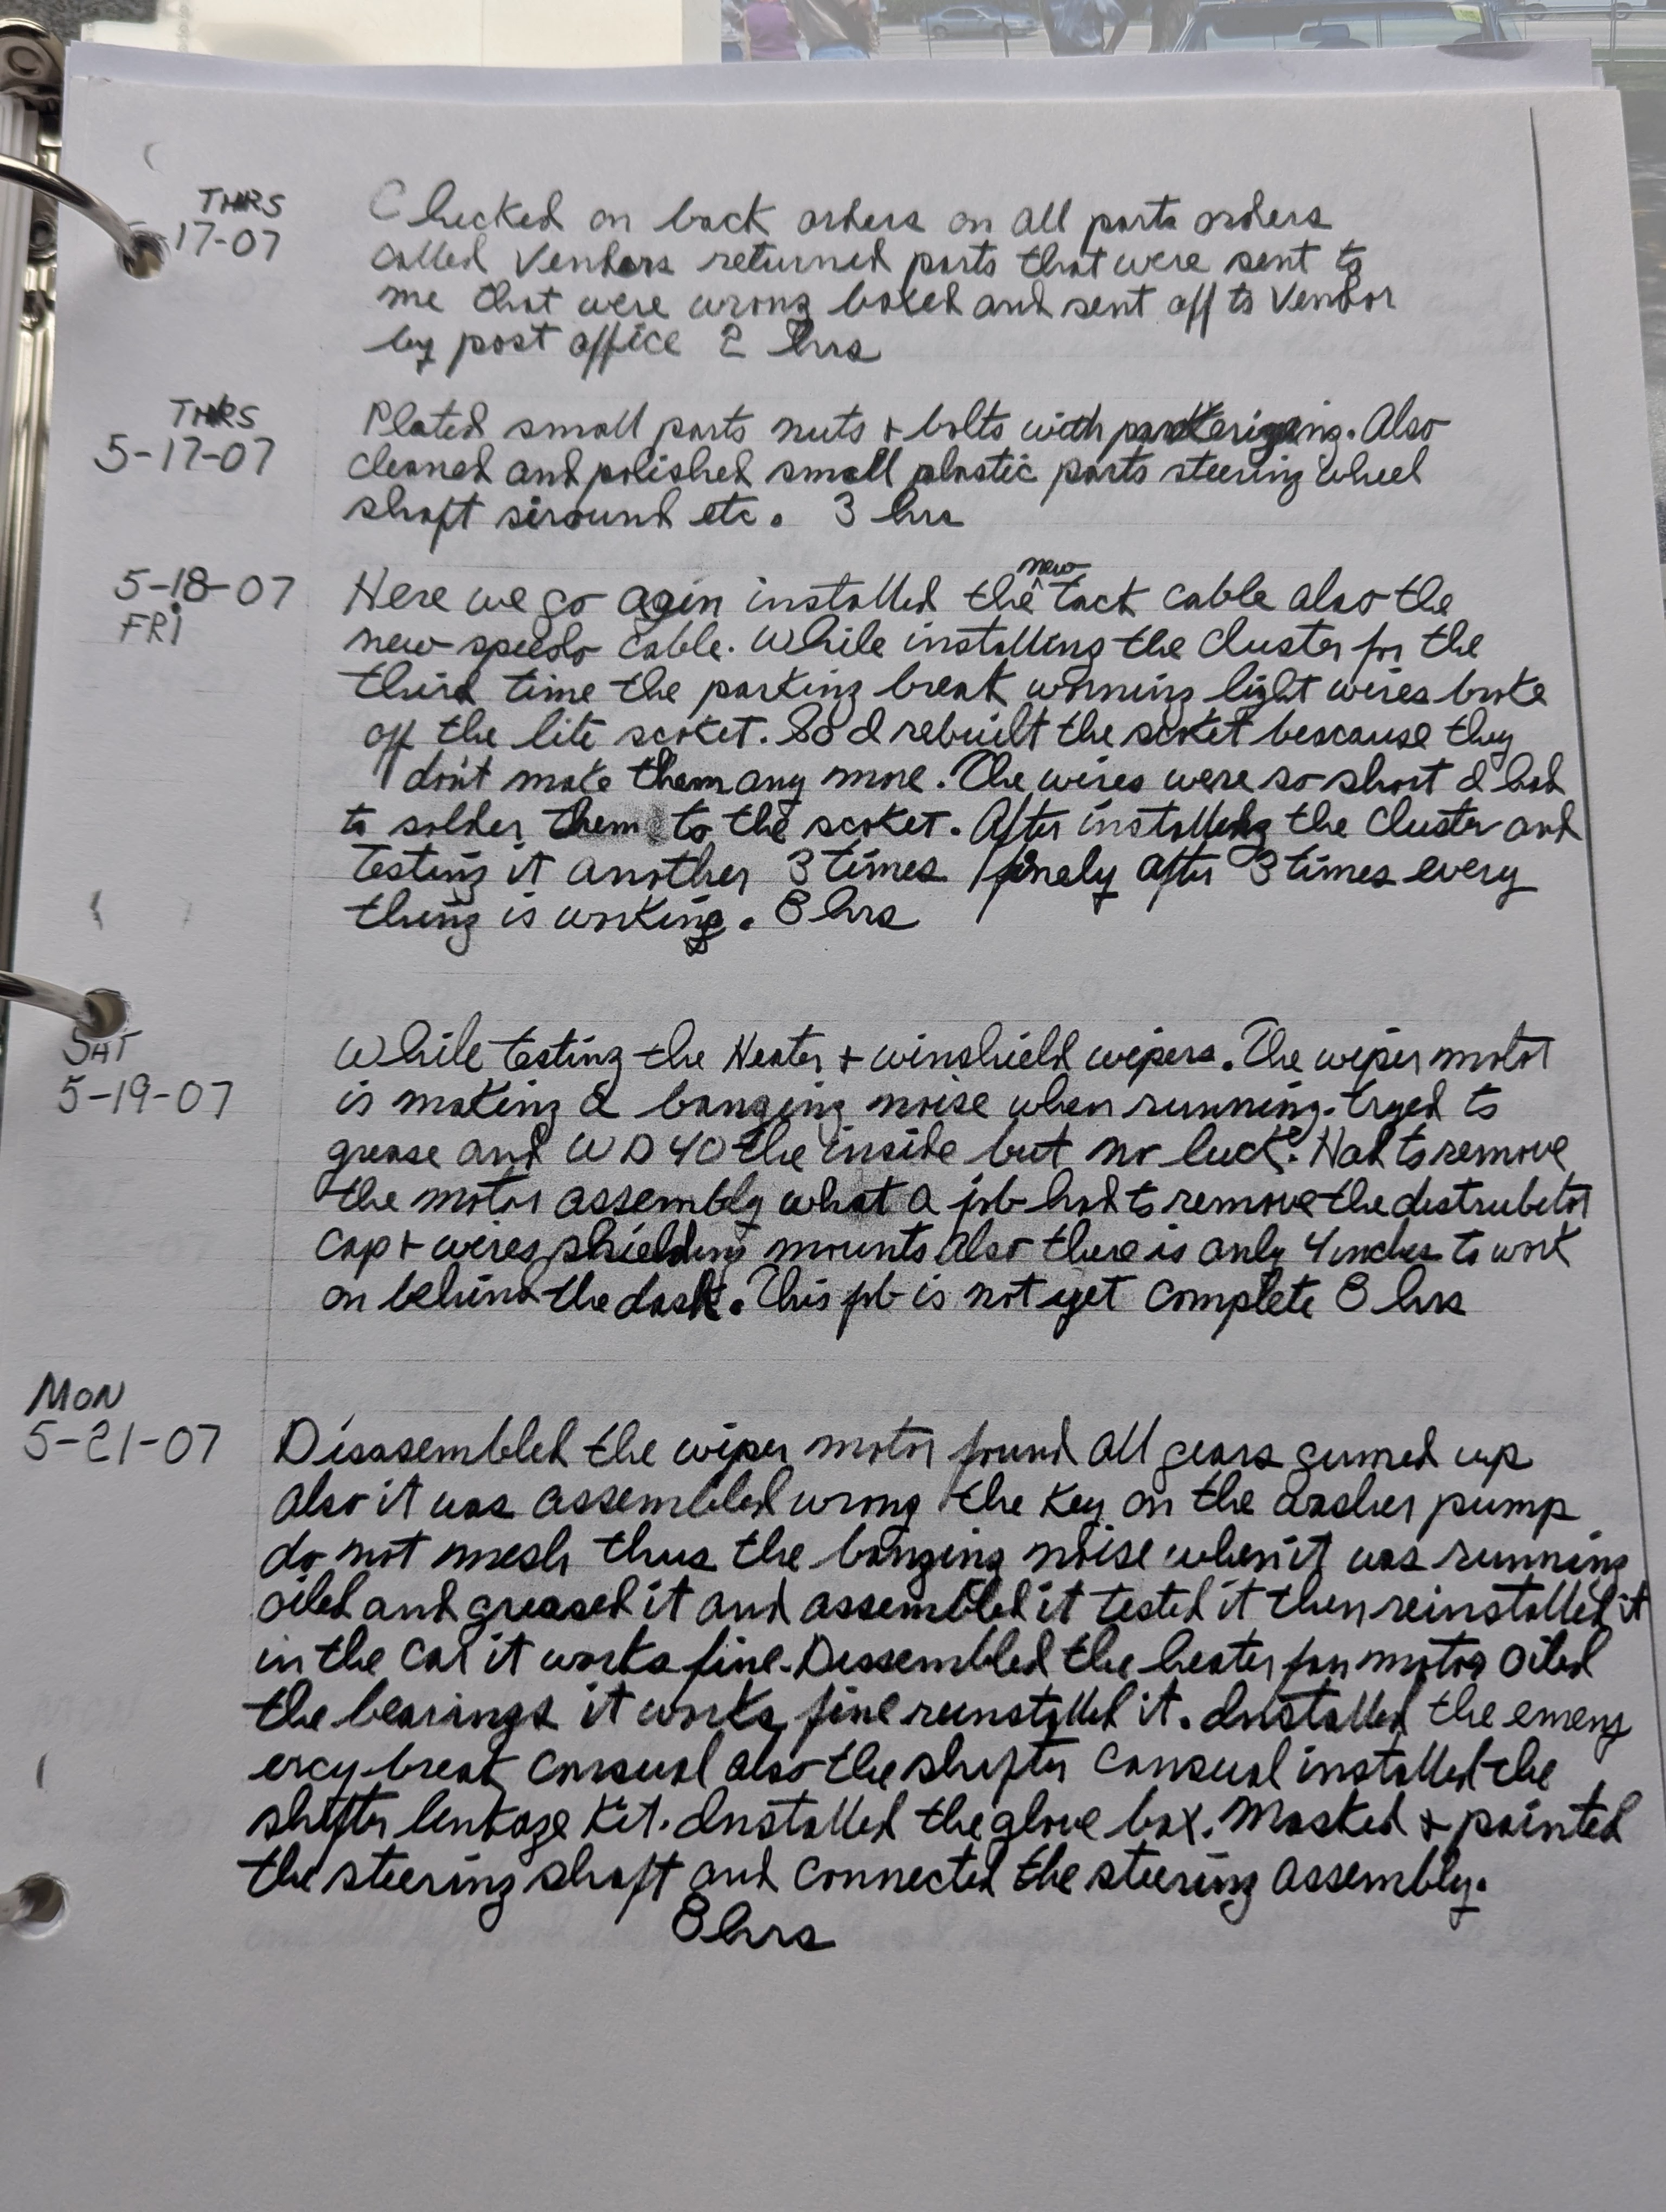 THRS
17-07
Checked on back orders on all parts orders
called Vendors returned parts that were sent to
me that were wrong boxed and sent off to Vendor
by post office 2 hrs
THRS
5-17-07
Plated small parts nuts + bolts with parkerizing. Also
cleaned and polished small plastic parts steering wheel
shaft siround etc. 3 hrs
5-18-07
FRI
Here we go again installed the new tack cable also the
new speedo cable. While installing the cluster for the
third time the parking break worning light wires broke
off the lite scoket. So I rebuilt the scket bescause they
don't make them any more. The wires were so short I had
to solder them to the scoket. After installing the cluster and
testing it another 3 times finely after 3 times every
thing is working. 8 hrs
SAT
5-19-07
While testing the Heater + winshield wipers. The wiper motor
is making a banging noise when running. tryed to
grease and WD40 the inside but no luck. Had to remove
the motor assembly what a job had to remove the distrubitor
cap + wires shielding mounts also there is only 4 inches to work
on behind the dash. This job is not yet complete 8 hrs
MON
5-21-07
Disasembled the wiper motor found all gears gumed up
also it was assembled wrong the key on the washer pump
do not mesh thus the banging noise when it was running
oiled and greased it and assembled it tested it then reinstalled it
in the car it works fine. Dissembled the heater fan motor oiled
the bearings it works fine reinstalled it. Installed the emerg
ercy break consual also the shifter consual installed the
shifter linkage kit. Installed the glove box. Masked + painted
the steering shaft and connected the steering assembly.
8 hrs